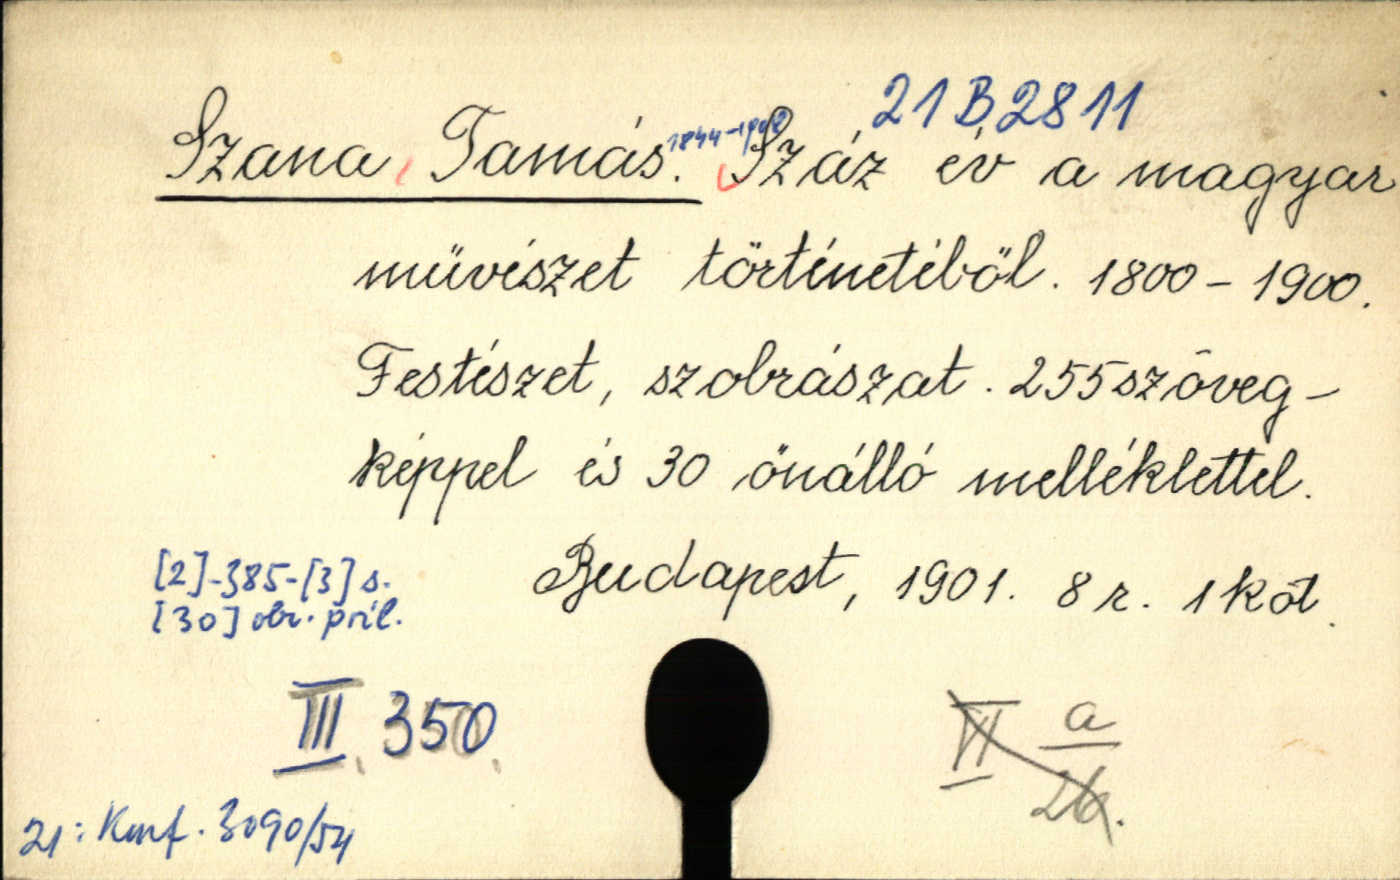 21 B 2811
Szana, Tamás. 1844-1908 Száz év a magyar
müvészet történetéböl. 1800-1900.
Festészet, szobrászat. 255 szöveg-
képpel és 30 önálló melléklettel.
Budapest, 1901. 8 r. 1 köt.
[2]-385-[3] s.
[30] obr. príl.
III. 350.
VI a/26.
21: Konf. 3090/54